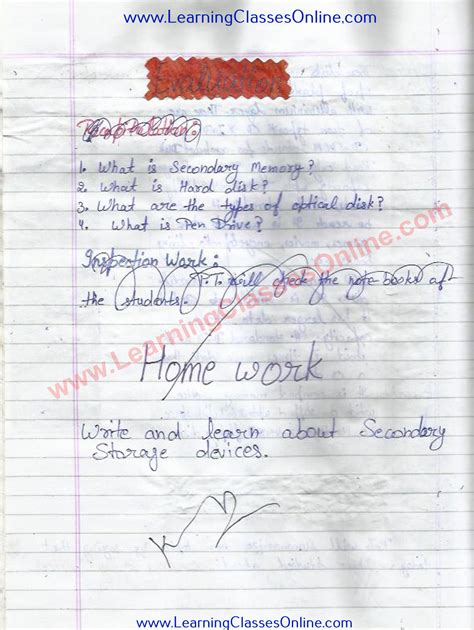 www.LearningClassesOnline.com
Evaluation
Recapitulation:
1. What is Secondary Memory?
2. What is Hard disk?
3. What are the types of optical disk?
4. What is Pen Drive?
Inspection Work:
P.T. will check the note books of
the students.
www.LearningClassesOnline.com
Home work
Write and learn about Secondary
Storage devices.
www.LearningClassesOnline.com